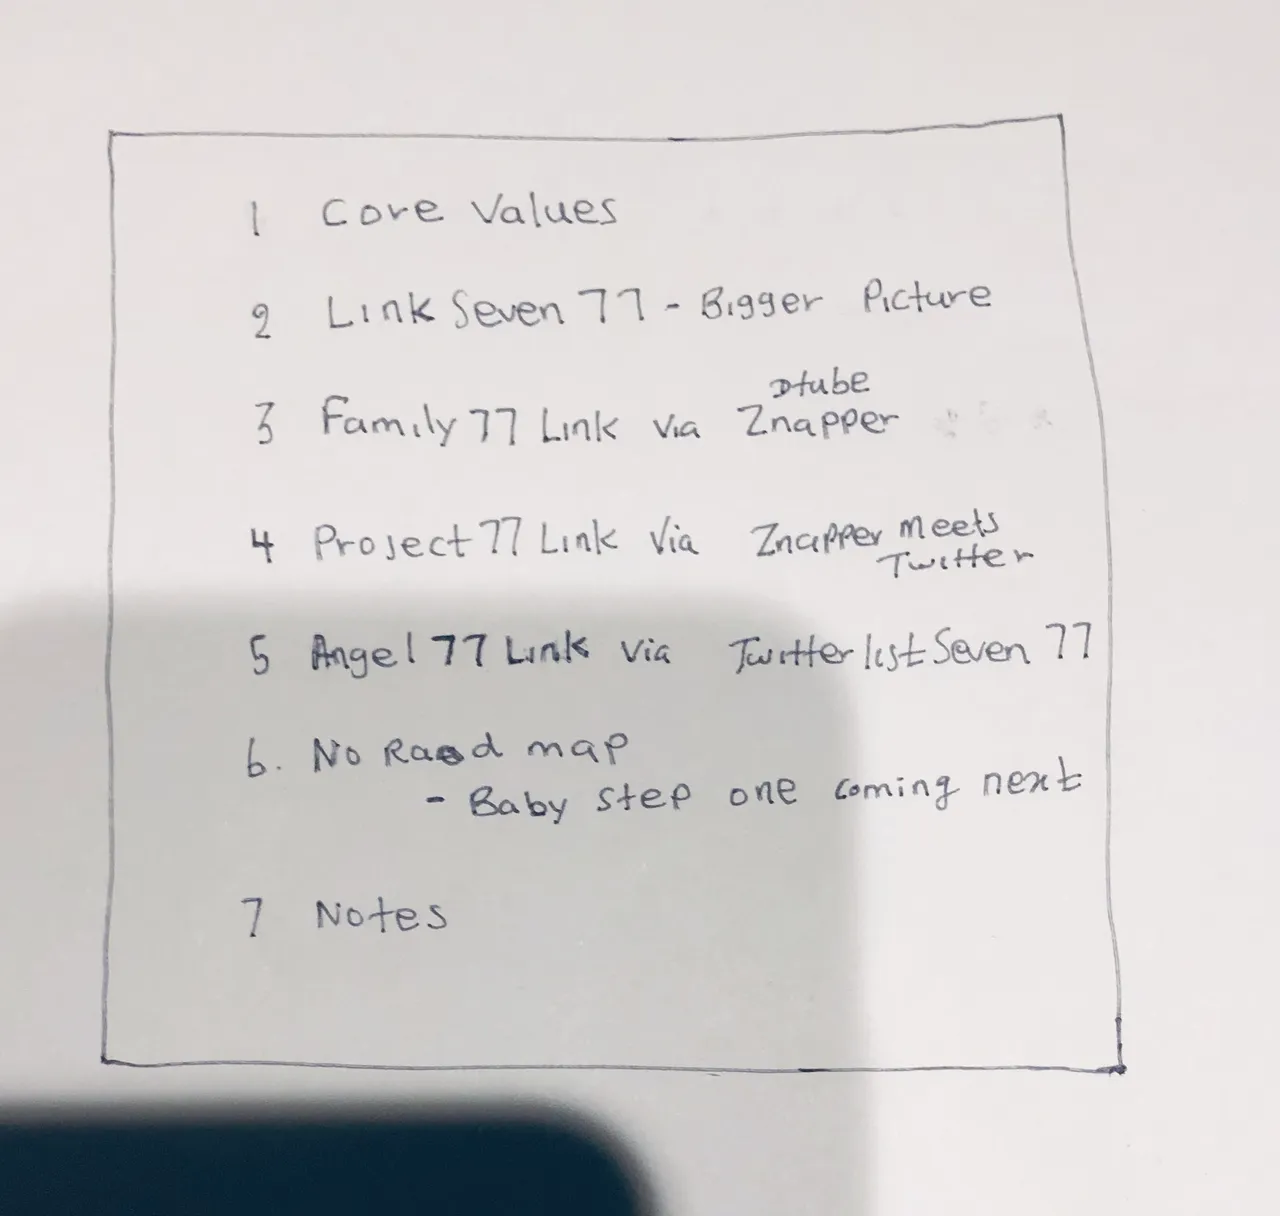 1 Core Values
2 Link Seven 77 - Bigger Picture
Dtube
3 Family 77 Link via Znapper
4 Project 77 Link Via Znapper meets
Twitter
5 Angel 77 Link via Twitter list Seven 77
6. No Raod map
- Baby step one coming next
7 Notes